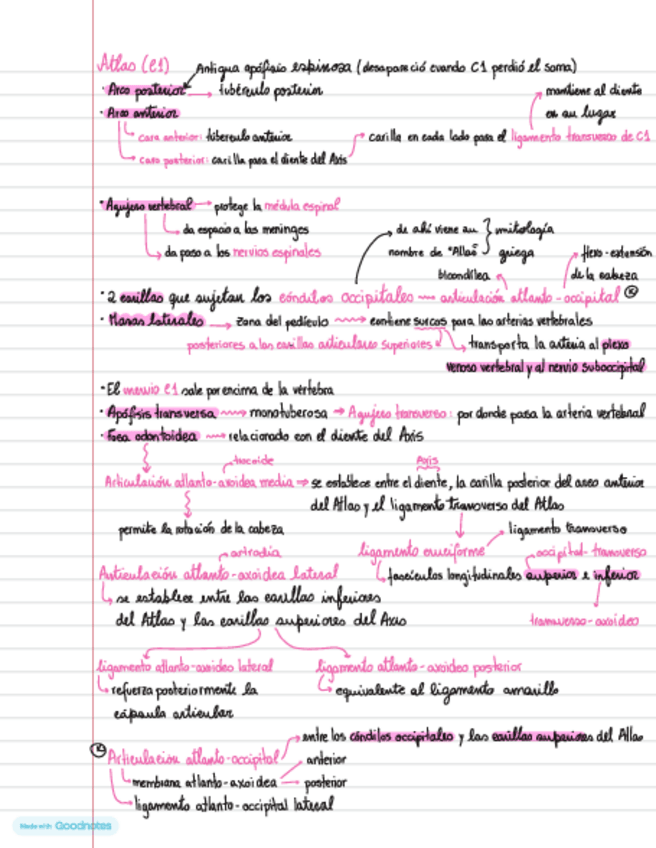 Atlas (C1)
Antigua apófisis espinosa (desapareció cuando C1 perdió el soma)
· Arco posterior → tubérculo posterior
mantiene al diente
en su lugar
· Arco anterior
cara anterior: tubérculo anterior
carilla en cada lado para el ligamento transverso de C1
cara posterior: carilla para el diente del Axis
· Agujero vertebral → protege la médula espinal
da espacio a las meninges
da paso a los nervios espinales
de ahí viene su
nombre de "Atlas"
mitología
griega
bicondílea
flexo-extensión
de la cabeza
· 2 carillas que sujetan los cóndilos occipitales → articulación atlanto-occipital
· Masas laterales → zona del pedículo → contiene surcos para las arterias vertebrales
posteriores a las carillas articulares superiores
transporta la arteria al plexo
venoso vertebral y al nervio suboccipital
· El nervio C1 sale por encima de la vértebra
· Apófisis transversa → monotuberosa → Agujero transverso: por donde pasa la arteria vertebral
· Fosa odontoidea → relacionado con el diente del Axis
trocoide
Axis
Articulación atlanto-axoidea media → se establece entre el diente, la carilla posterior del arco anterior
del Atlas y el ligamento transverso del Atlas
permite la rotación de la cabeza
ligamento transverso
artrodia
ligamento cruciforme
occipital-transverso
Articulación atlanto-axoidea lateral
fascículos longitudinales superior e inferior
se establece entre las carillas inferiores
del Atlas y las carillas superiores del Axis
transverso-axoideo
ligamento atlanto-axoideo lateral
ligamento atlanto-axoideo posterior
refuerza posteriormente la
cápsula articular
equivalente al ligamento amarillo
entre los cóndilos occipitales y las carillas superiores del Atlas
Articulación atlanto-occipital
anterior
membrana atlanto-axoidea
posterior
ligamento atlanto-occipital lateral
Made with Goodnotes